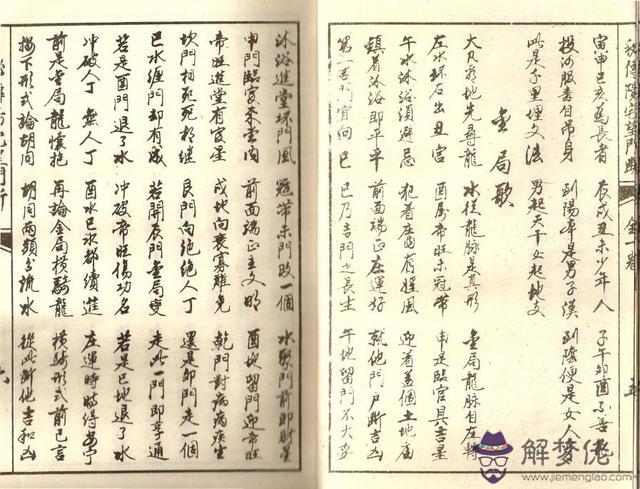 寅申巳亥為長者 辰戌丑未少年人 子午卯酉不善死
投河服毒自吊身 到陽 是男子漢 到陰便是女人
此是千里埋文法 男起天干女起地支
金局歌
大凡看地先尋龍 水經龍脈是真形 金局龍脈自左轉
左水环右出丑宮 酉屬帝旺未冠帶 申是臨官 吉星
午水沐浴須避忌 犯着庄園有婬風 迎着蓋個土地廟
鎮着沐浴即平平 前面端正庄運好 就他門户断吉凶
第一吉門宜向巳 巳乃吉門之長生 午地留門不大享
沐浴進堂坏門風 冠帶未門敗一個 水聚門前即财星
申門臨官来 前面端正主文明 酉地留門迎帝旺
帝旺進堂有官星 戌地向衰寡难免 乾門対病病疾生
坎門相死死 継 艮門向绝绝人丁 還是卯門走一個
巳水缠門却有成 若開辰門金局變 走此一門即享通
若是酉門退了水 冲破帝旺傷功名 若是巳地退了水
冲破人丁無人丁 酉水巳水都續進 庄運時時得安宁
前是金局龍懷抱 再論金局横騎龍 横騎形式前已言
按下形式論胡同 胡同兩頭多流水 從此断他吉和凶
解梦佬
www.jiemenglao.com